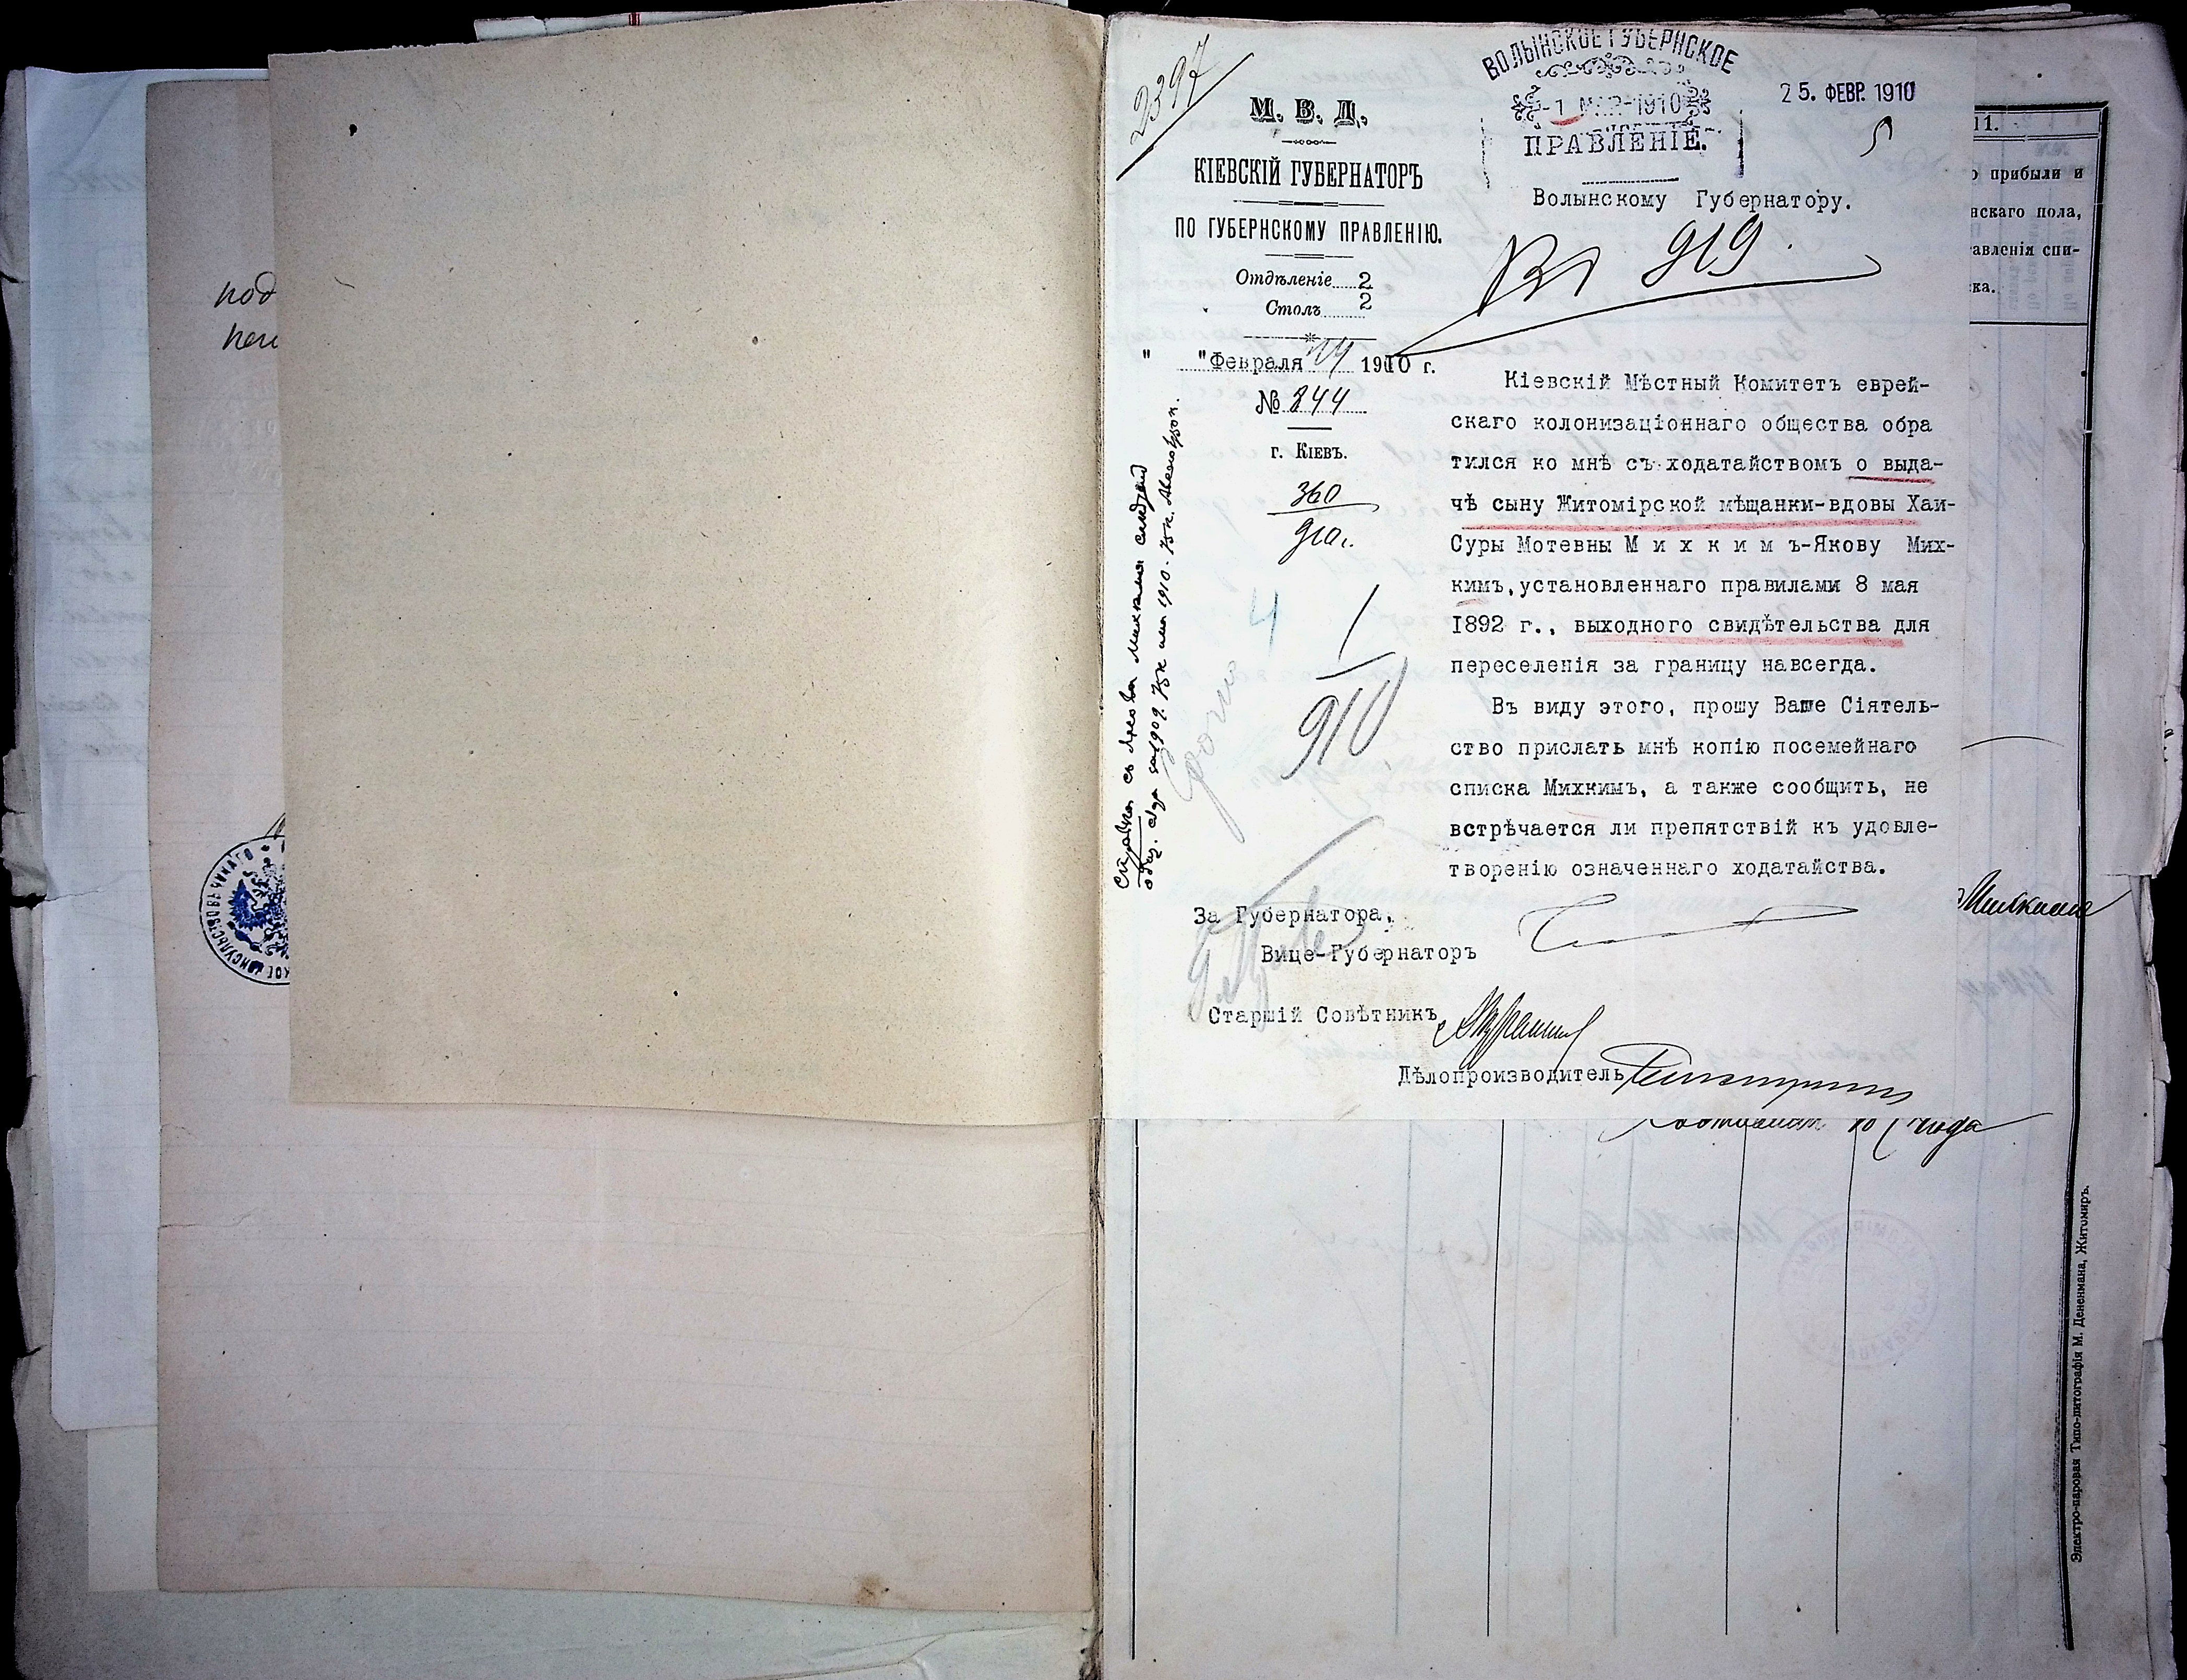 под
2397
М. В. Д.
КІЕВСКІЙ ГУБЕРНАТОРЪ
ПО ГУБЕРНСКОМУ ПРАВЛЕНІЮ.
Отдѣленіе 2
Столъ 2
" "Февраля 1910 г.
№ 844
г. КІЕВЪ.
360
910 г.
4
1
910
срочно
ВОЛЫНСКОЕ ГУБЕРНСКОЕ
-1 МАР-1910
ПРАВЛЕНІЕ.
25. ФЕВР. 1910
5
Волынскому Губернатору.
919.
Кіевскій Мѣстный Комитетъ еврей-
скаго колонизаціоннаго общества обра
тился ко мнѣ съ ходатайствомъ о выда-
чѣ сыну Житомірской мѣщанки-вдовы Хаи-
Суры Мотевны М и х к и м ъ-Якову Мих-
кимъ, установленнаго правилами 8 мая
1892 г., выходного свидѣтельства для
переселенія за границу навсегда.
Въ виду этого, прошу Ваше Сіятель-
ство прислать мнѣ копію посемейнаго
списка Михкимъ, а также сообщить, не
встрѣчается ли препятствій къ удовле-
творенію означеннаго ходатайства.
За Губернатора,
Вице-Губернаторъ
Старшій Совѣтникъ
Дѣлопроизводитель
11.
о прибыли и
нскаго пола,
авленія спи-
ска.
Электро-паровая Типо-литографія М. Дененмана, Житомиръ.